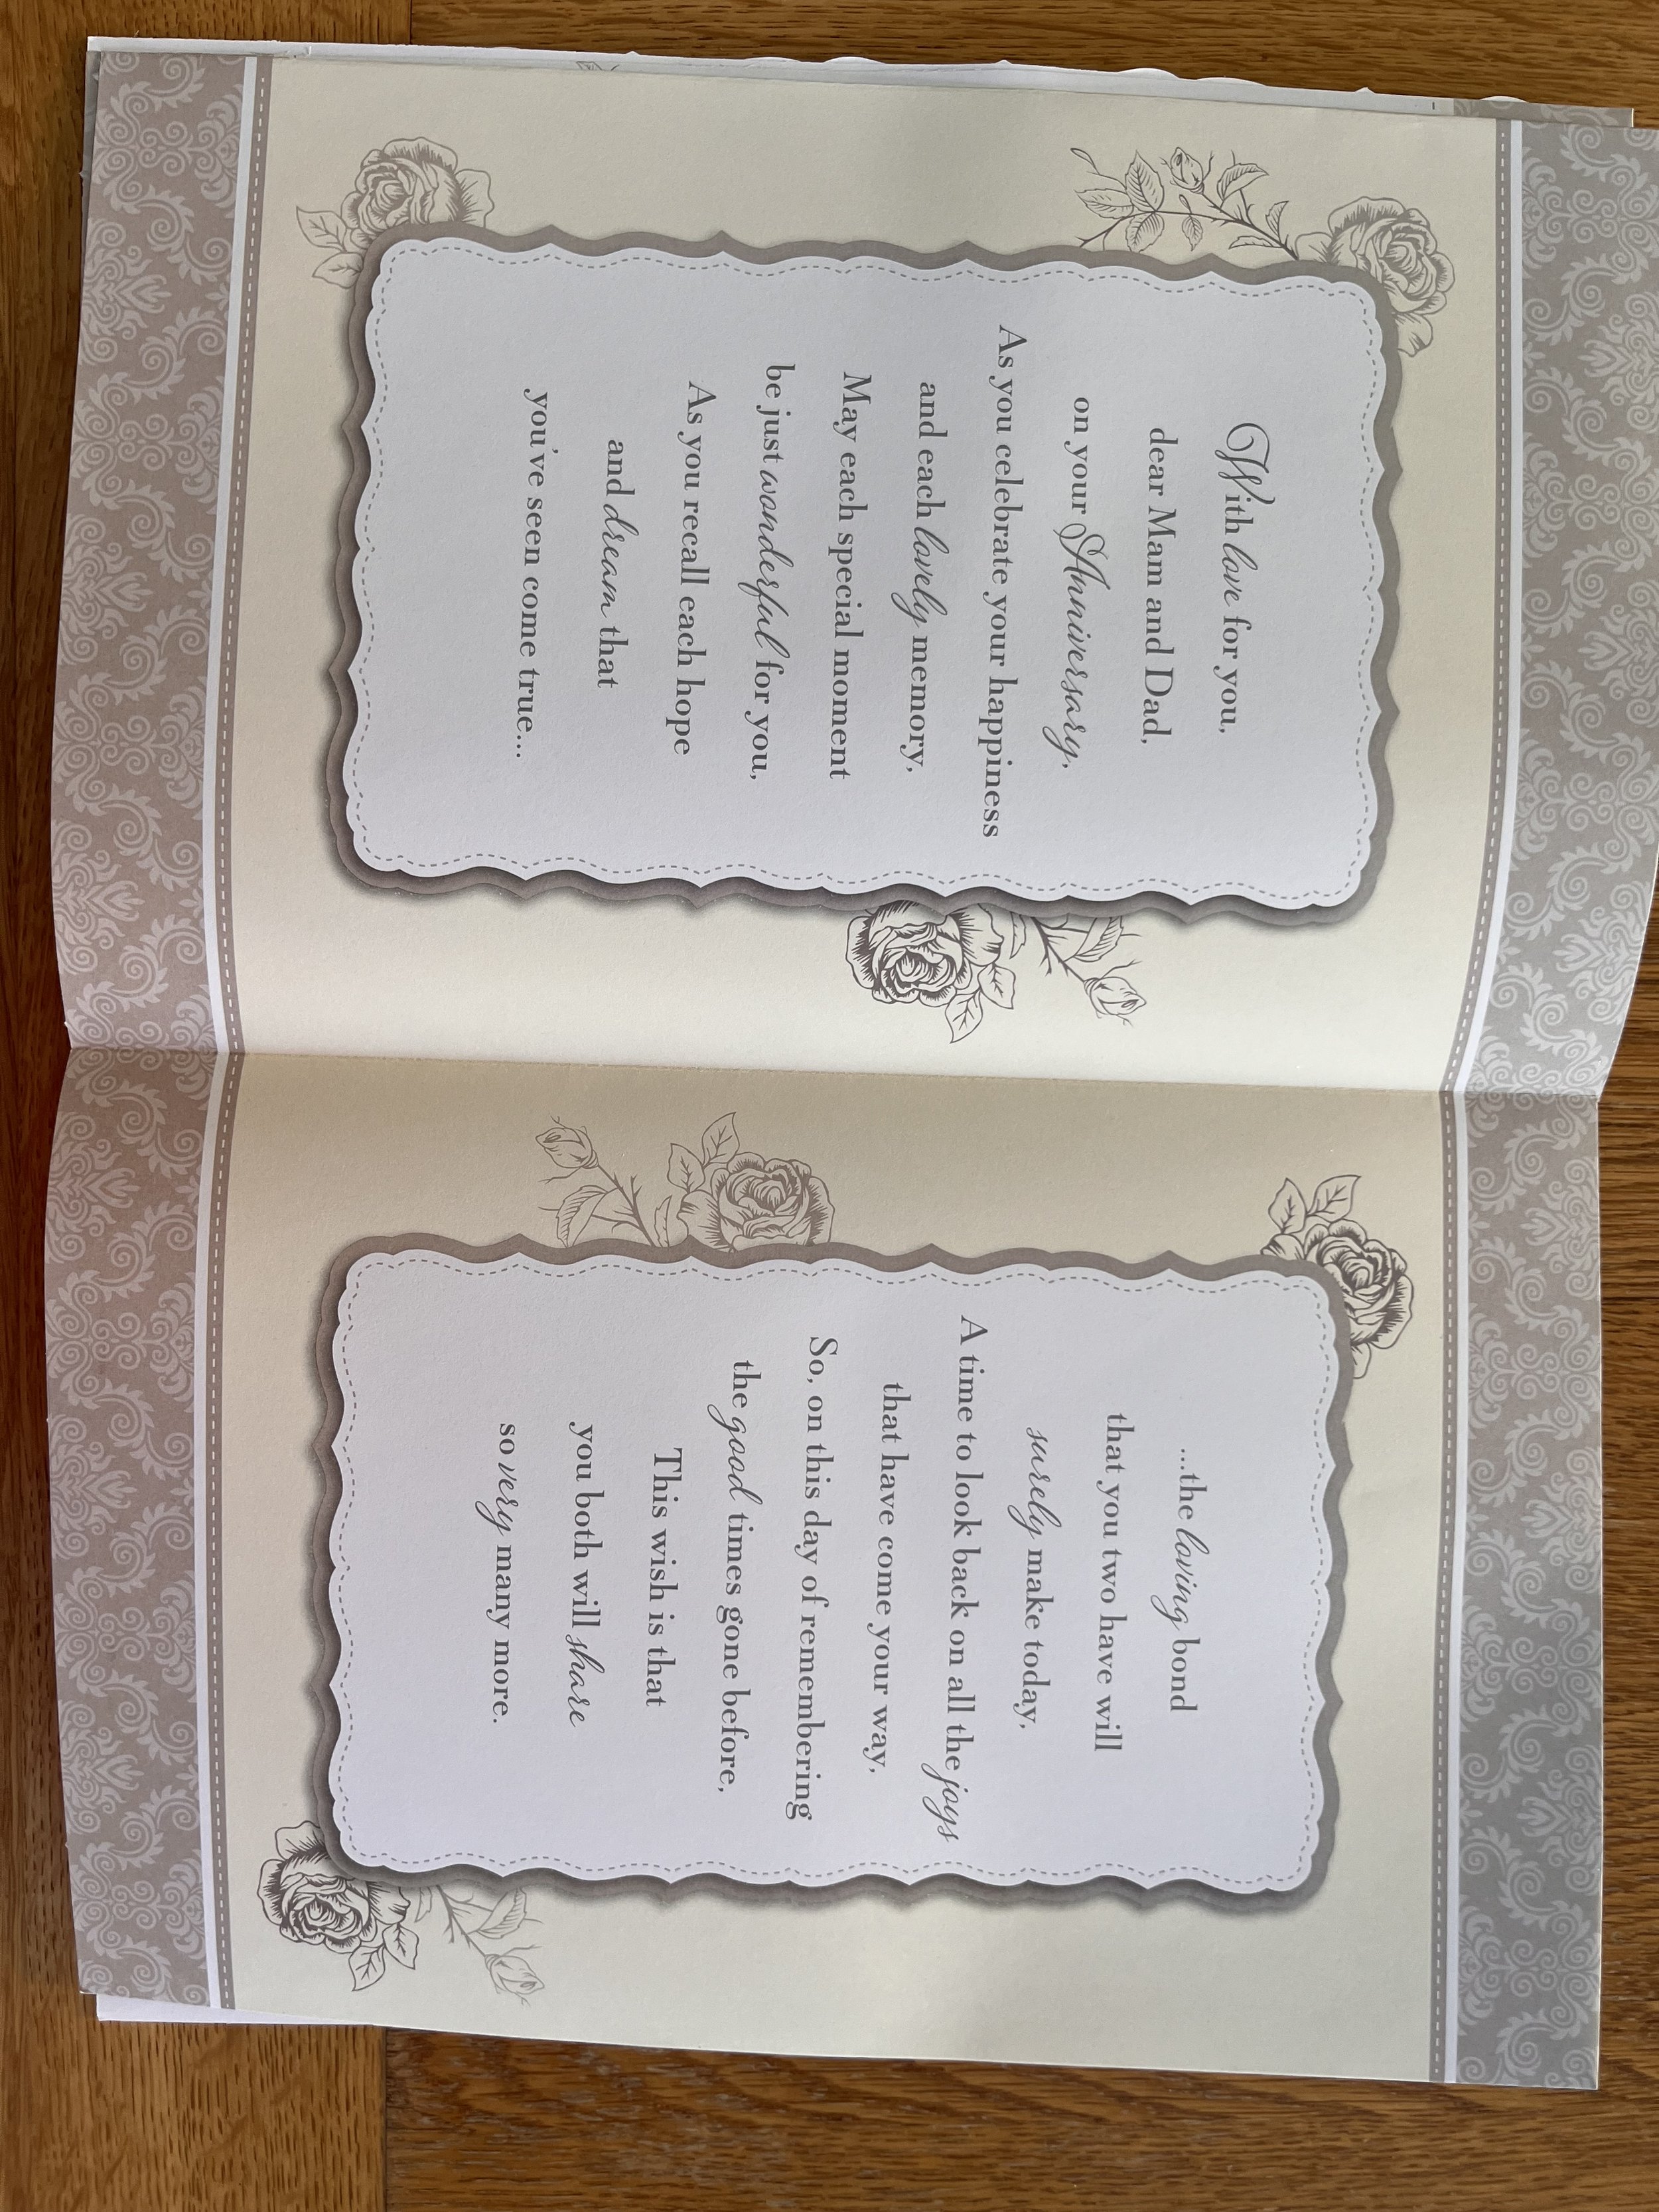 With love for you,
dear Mam and Dad,
on your Anniversary,
As you celebrate your happiness
and each lovely memory,
May each special moment
be just wonderful for you,
As you recall each hope
and dream that
you've seen come true...
...the loving bond
that you two have will
surely make today,
A time to look back on all the joys
that have come your way,
So, on this day of remembering
the good times gone before,
This wish is that
you both will share
so very many more.